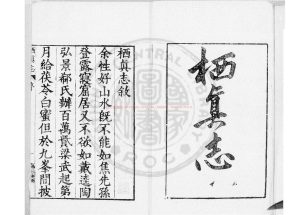 栖真志
栖真志敘
余性好山水既不能如焦先孫
登露寢窟居又不欲如戴逵陶
弘景郗氏辦百萬貲梁武起第
月給茯苓白蜜但於九峯間披